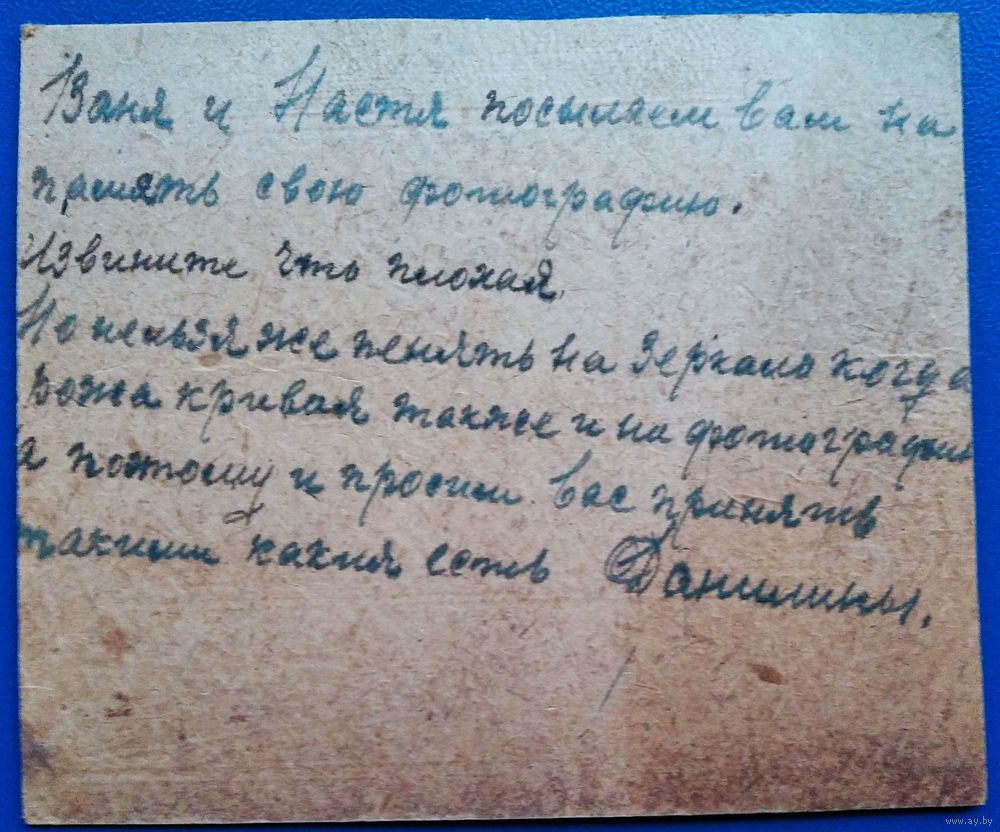 Ваня и Настя посыляем вам на
память свою фотографию.
Извините что плохая.
Но нельзя же пенять на зеркало когда
рожа кривая также и на фотографию
а потому и просим вас принять
такими какия есть Данилины.
www.ay.by